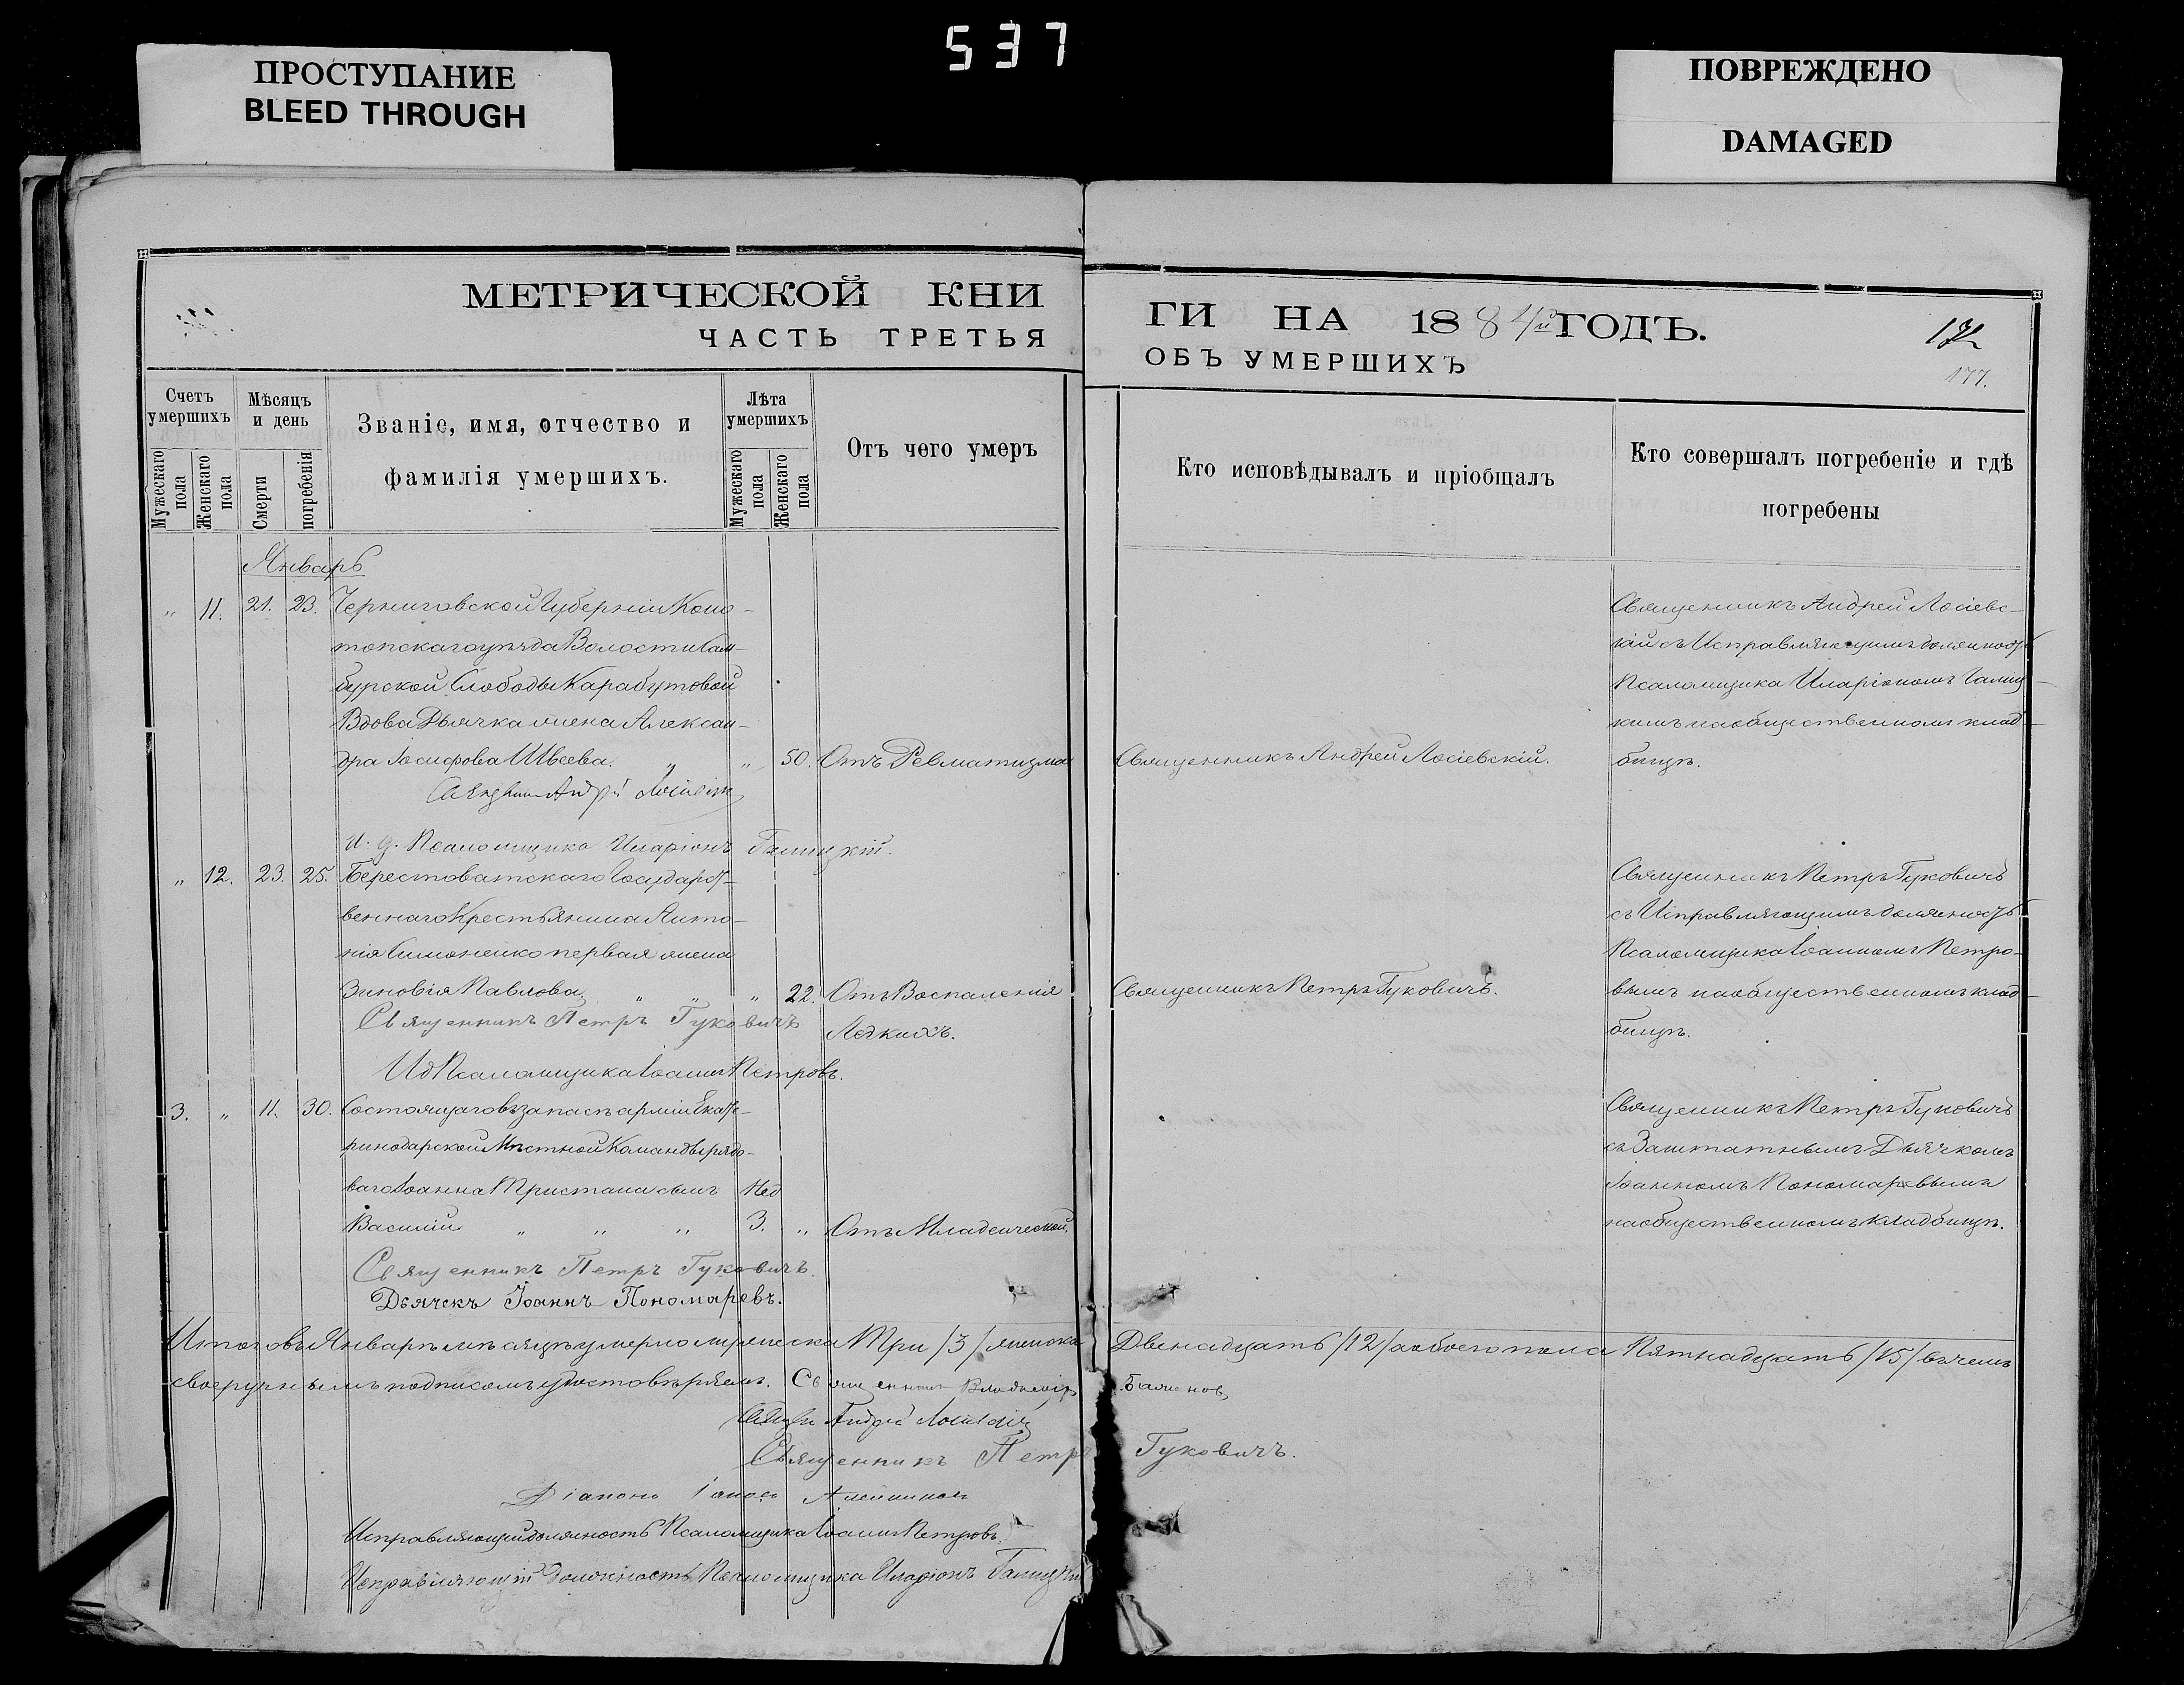 537
ПРОСТУПАНИЕ
BLEED THROUGH
ПОВРЕЖДЕНО
DAMAGED
МЕТРИЧЕСКОЙ КНИ
ГИ НА 1884й ГОДЪ.
ЧАСТЬ ТРЕТЬЯ
ОБЪ УМЕРШИХЪ
177.
Счетъ умершихъ
Мужескаго пола
Женскаго пола
Мѣсяцъ и день
Смерти
погребенія
Званіе, имя, отчество и
фамилія умершихъ.
Лѣта умершихъ
Мужескаго пола
Женскаго пола
Отъ чего умеръ
Кто исповѣдывалъ и пріобщалъ
Кто совершалъ погребеніе и гдѣ
погребены
Январь
" 11. 21. 23. Черниговской Губерніи Коно-
топскаго уѣзда Волости
бурской Слободы Карабутовой
Вдова Дьячка жена Алексан-
дра Іосифова Швеева. " " 50. Отъ Ревматизма
Священникъ Андрей Лосіевскій.
Священникъ Андрей Лосіевс-
кій съ Исправляющимъ должность
Псаломщика Иларіономъ Галиц-
кимъ на общественномъ клад-
бищѣ.
И. д. Псаломщика Иларіонъ Галицкій.
" 12. 23. 25. Берестоватскаго Государст-
веннаго Крестьянина Анто-
нія Симоненко первая жена
Зиновія Павлова " " " 22. Отъ Воспаленія
Легкихъ.
Священникъ Петръ Гуковичъ.
Священникъ Петръ Гуковичъ
съ Исправляющимъ должность
Псаломщика Іоанномъ Петро-
вымъ на общественномъ клад-
бищѣ.
Священникъ Петръ Гуковичъ
ИдПсаломщика Іоаннъ Петровъ.
3. " 11. 30. Состоящаго въ запасѣ арміи Екате-
ринодарской Мѣстной Команды рядо-
ваго Іоанна Тристана сынъ Нед
Василій " " " 3. " Отъ Младенческой.
Священникъ Петръ Гуковичъ
съ Заштатнымъ Дьячкомъ
Іоанномъ Пономаревымъ
на общественномъ кладбищѣ.
Священникъ Петръ Гуковичъ.
Дьячекъ Іоаннъ Пономаревъ.
Итого въ Январѣ мѣсяцѣ умерло мужеска Три /3/ женска Двенадцать /12/ а обоего пола Пятнадцать /15/ въ чемъ
своеручнымъ подписомъ удостовѣряемъ. Священникъ Владиміръ Баженов
Андрей
Священникъ Петръ Гуковичъ.
Діаконъ
Исправляющій должность Псаломщика Іоаннъ Петровъ.
Исправляющій должность Псаломщика Иларіонъ Галицкій